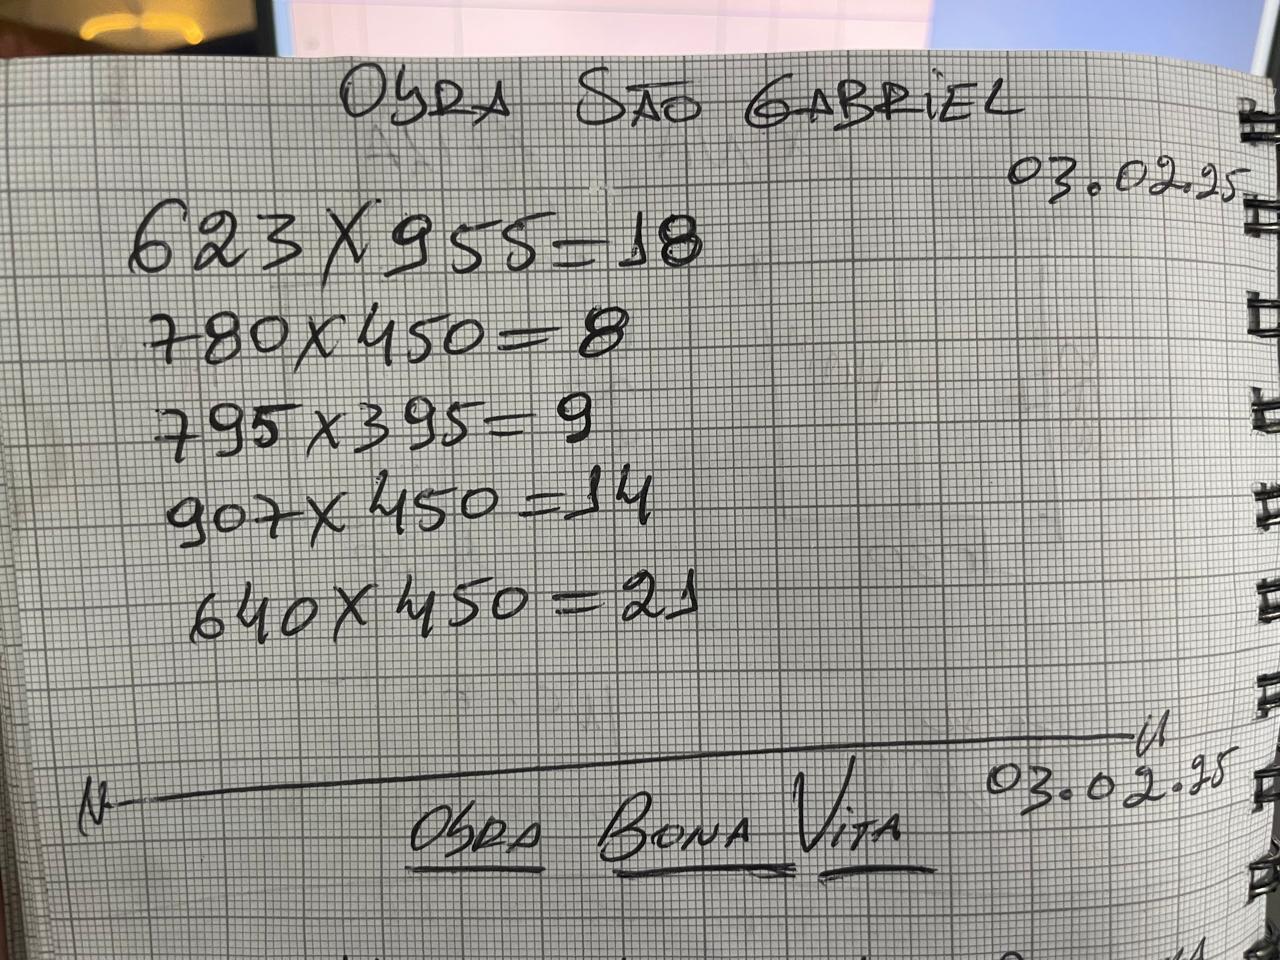 OBRA SÃO GABRIEL
03.02.25
623X955=18
780X450=8
795X395=9
907X450=14
640X450=21
03.02.25
OBRA BONA VITA